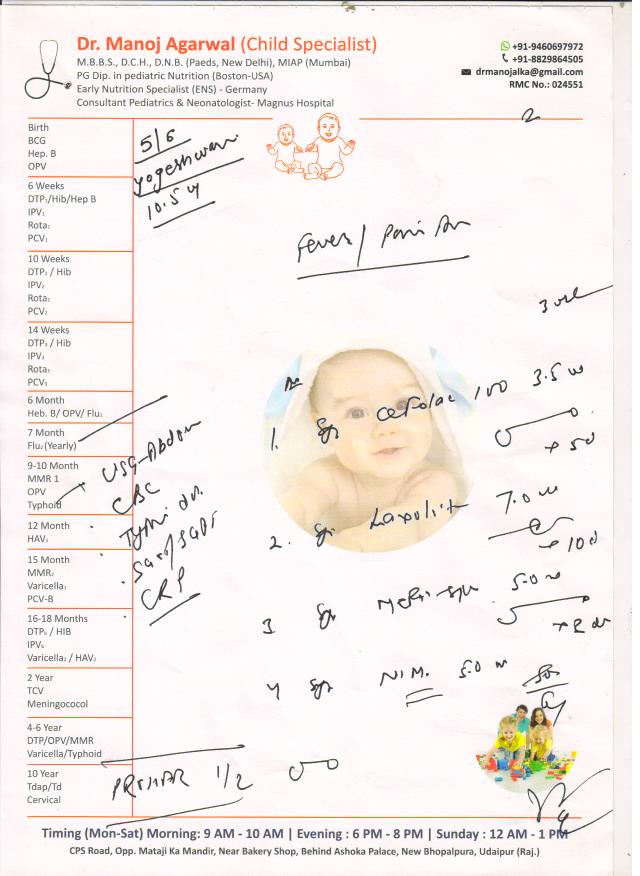 Dr. Manoj Agarwal (Child Specialist)
M.B.B.S., D.C.H., D.N.B. (Paeds, New Delhi), MIAP (Mumbai)
PG Dip. in pediatric Nutrition (Boston-USA)
Early Nutrition Specialist (ENS) - Germany
Consultant Pediatrics & Neonatologist- Magnus Hospital
+91-9460697972
+91-8829864505
drmanojalka@gmail.com
RMC No.: 024551
2
Birth
BCG
Hep. B
OPV
5/6
yogeshwari
10.5
6 Weeks
DTP₁/Hib/Hep B
IPV₁
Rota₁
PCV₁
Fever/
10 Weeks
DTP₂ / Hib
IPV₂
Rota₂
PCV₂
14 Weeks
DTP₃ / Hib
IPV₃
Rota₃
PCV₃
6 Month
Heb. B/ OPV/ Flu₁
7 Month
Flu₂(Yearly)
9-10 Month
MMR 1
OPV
Typhoid
12 Month
HAV₁
15 Month
MMR₂
Varicella₁
PCV-B
16-18 Months
DTP₄ / HIB
IPV₄
Varicella₂ / HAV₂
2 Year
TCV
Meningococol
4-6 Year
DTP/OPV/MMR
Varicella/Typhoid
10 Year
Tdap/Td
Cervical
USG-Abdom
CBC
CRP
1. Syp 100 3.5
x 5d
2. Syp 7.0
x 10d
3 Syp 5.0
4 Syp N.I.M. 5.0
SOS
1/2
Timing (Mon-Sat) Morning: 9 AM - 10 AM | Evening : 6 PM - 8 PM | Sunday : 12 AM - 1 PM
CPS Road, Opp. Mataji Ka Mandir, Near Bakery Shop, Behind Ashoka Palace, New Bhopalpura, Udaipur (Raj.)